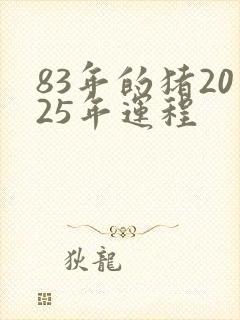 83年的猪20
25年運程
狄龍